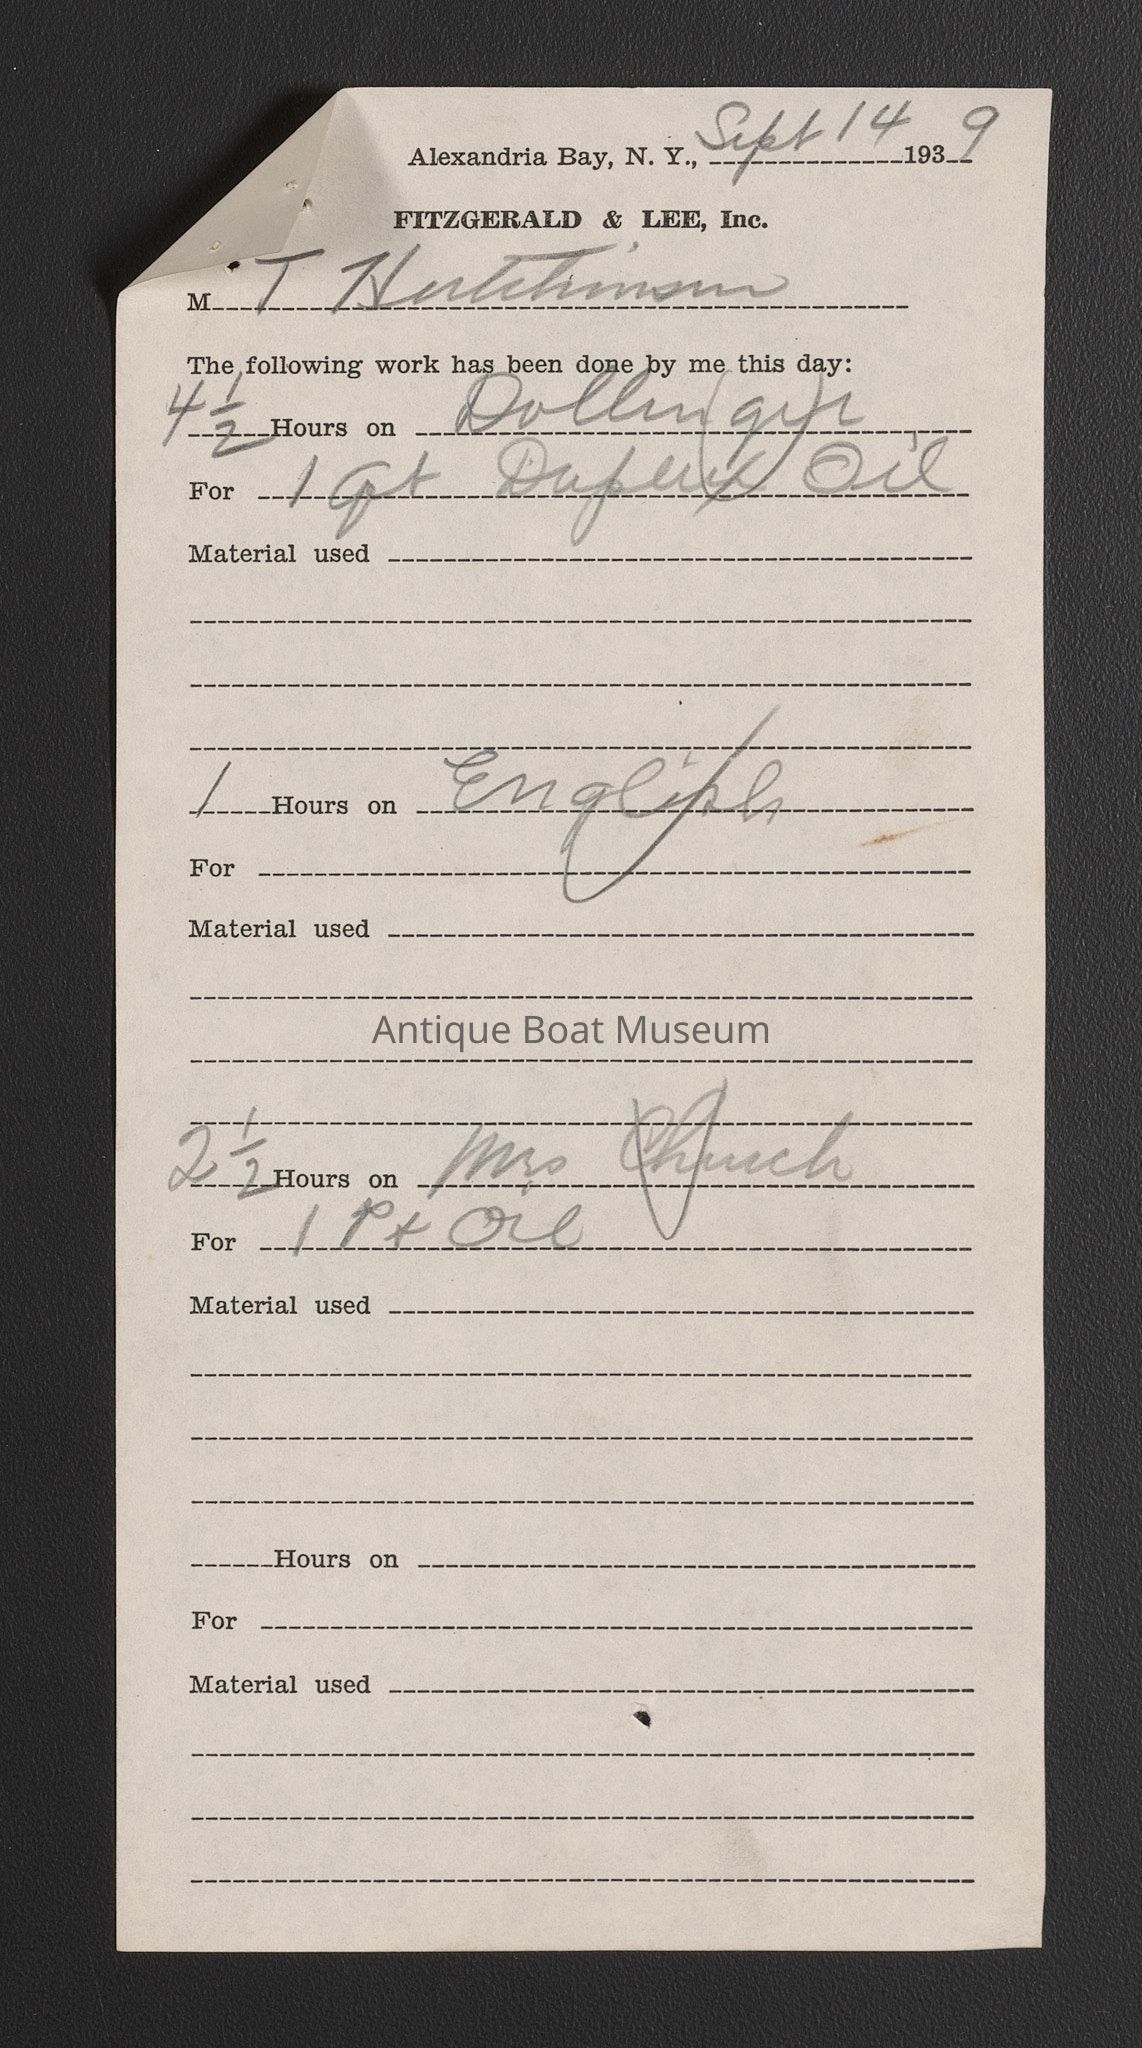 Alexandria Bay, N. Y., Sept 14 1939
FITZGERALD & LEE, Inc.
M T Hutchinson
The following work has been done by me this day:
4 1/2 Hours on Dollinger
For 1 qt Duplex Oil
Material used
1 Hours on English
For
Material used
Antique Boat Museum
2 1/2 Hours on Mrs Church
For 1 Pt Oil
Material used
Hours on
For
Material used